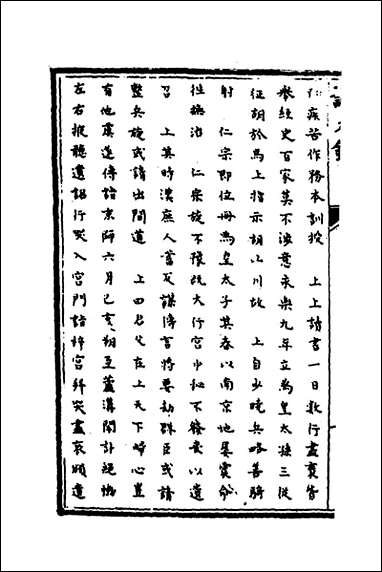 疾苦作務本訓授　上上讀書一日數行盡裏皆
舉經史百家莫不涉意永樂九年立為皇太孫三從
征胡於馬上指示胡以川故　上自少曉兵略善騎
射　仁宗即位冊為皇太子其春以南京地屢震命
往撫治　仁宗旋不豫既大行宮中秘不發喪以遺
召　上其時漢庶人蓄反謀傳言將要劫群臣或請
整兵旋或請出間道　上曰君父在上天下歸心豈
有他虞遂傳詣京師六月己亥朔至蘆溝聞訃絕慟
左右掖聽遺詔行哭入宮門詣梓宮拜哭盡哀頒遺